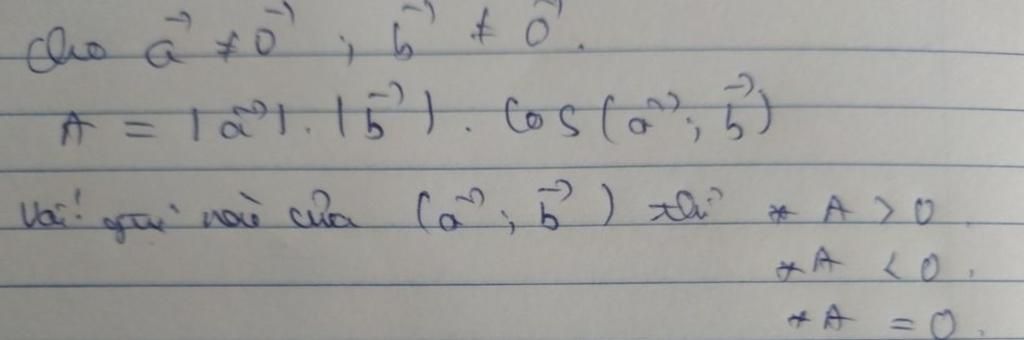 Cho a⃗ ≠ 0⃗ ; b⃗ ≠ 0⃗.
A = |a⃗| . |b⃗| . Cos(a⃗ ; b⃗)
Với giá trị nào của (a⃗ ; b⃗) thì * A > 0.
* A < 0.
* A = 0.